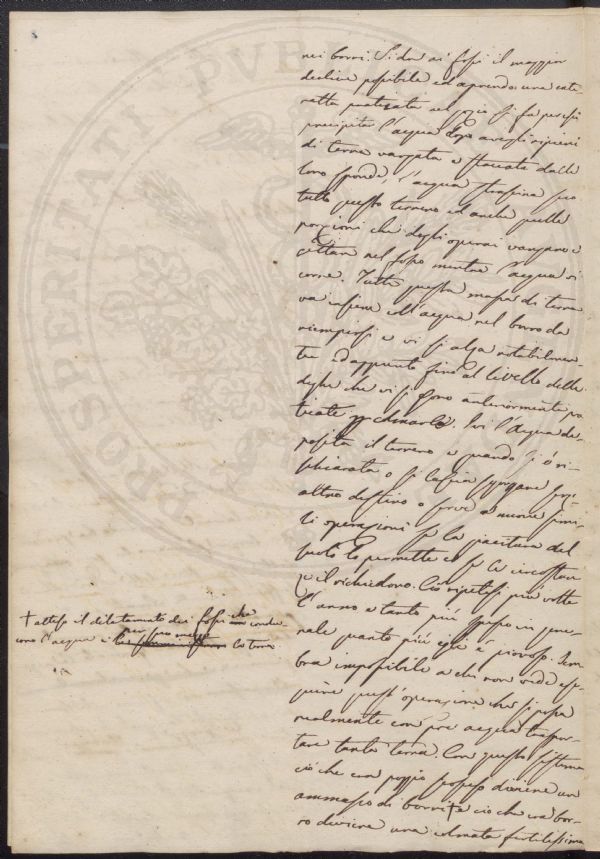 nei borri. Si dà ai fossi il maggior
declive possibile ed aprendo una cate-
ratta praticata nel si fa per essi
precipitar l'acqua dopo averli ripieni
di terra vangata e staccata dalle
loro sponde, l'acqua strascina seco
tutto questo terreno ed anche quelle
porzioni che degli operai vangano e
gettan nel fosso mentre l'acqua vi
corre. Tutta questa massa di terra
va insieme coll'acqua nel borro da
riempirsi e vi si alza notabilmen-
te ed appunto fino al livello delle
deghe che vi si sono anteriormente pra-
ticate. Ivi l'acqua de-
posita il terreno e quando si è ri-
schiarata o si lascia sgorgare senz'
altro destino o serve a nuove simi-
li operazioni se la giacitura del
suolo lo permette e se le circostan-
ze il richiedono. Ciò ripetesi più volte
l'anno e tanto più spesso in gene-
rale quanto più egli è piovoso. Sem-
bra impossibile a chi non vede ese-
guire quest'operazione che si possa
realmente con poca acqua traspor-
tare tanta terra. Con questo sistema
ciò che era poggio scosceso diviene un
ammasso di borri + e ciò che era bor-
ro diviene una colmata fertilissima
+ atteso il dilatamento dei fossi che condu-
cono l'acqua e per suo mezzo la terra